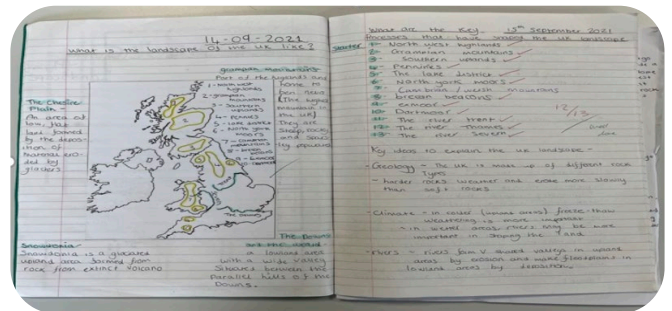 14-09-2021
What is the landscape of the UK like?
The Cheshire
Plain -
An area of
low, flat
land formed
by the depos-
ition of
materials
by
glaciers
Grampian mountains
Part of the highlands and
home to
Ben nevis
(The highest
mountain in
the UK)
They are
steep, rocky
and
populated
1 - north west
highlands
2 - grampian
mountains
3 - southern
uplands
4 - pennines
5 - lake district
6 - North york
moors
The Downs
Snowdonia
Snowdonia is a glaciated
upland area formed from
rock from extinct volcano
The Downs
a lowland area
with a wide valley
between two
parallel hills of the
Downs.
What are the key 15th September 2021
processes that have shaped the UK landscape
Starter
1- North west highlands
2- Grampian mountains
3- Southern uplands
4- Pennines
5- The lake district
6- North york moors
7- Cambrian / welsh mountains
8- brecon beacons
9- exmoor
10- Dartmoor
11- The river trent
12- The river Thames
13- The river severn
12/13
Key ideas to explain the UK landscape -
- Geology - The UK is made up of different rock
types
- harder rocks weather and erode more slowly
than soft rocks
- Climate - in colder (upland areas) freeze-thaw
weathering is more important
- in wetter areas rivers may be more
important in shaping the land
- rivers - rivers form V shaped valleys in upland
areas by erosion and make floodplains in
lowland areas by deposition.